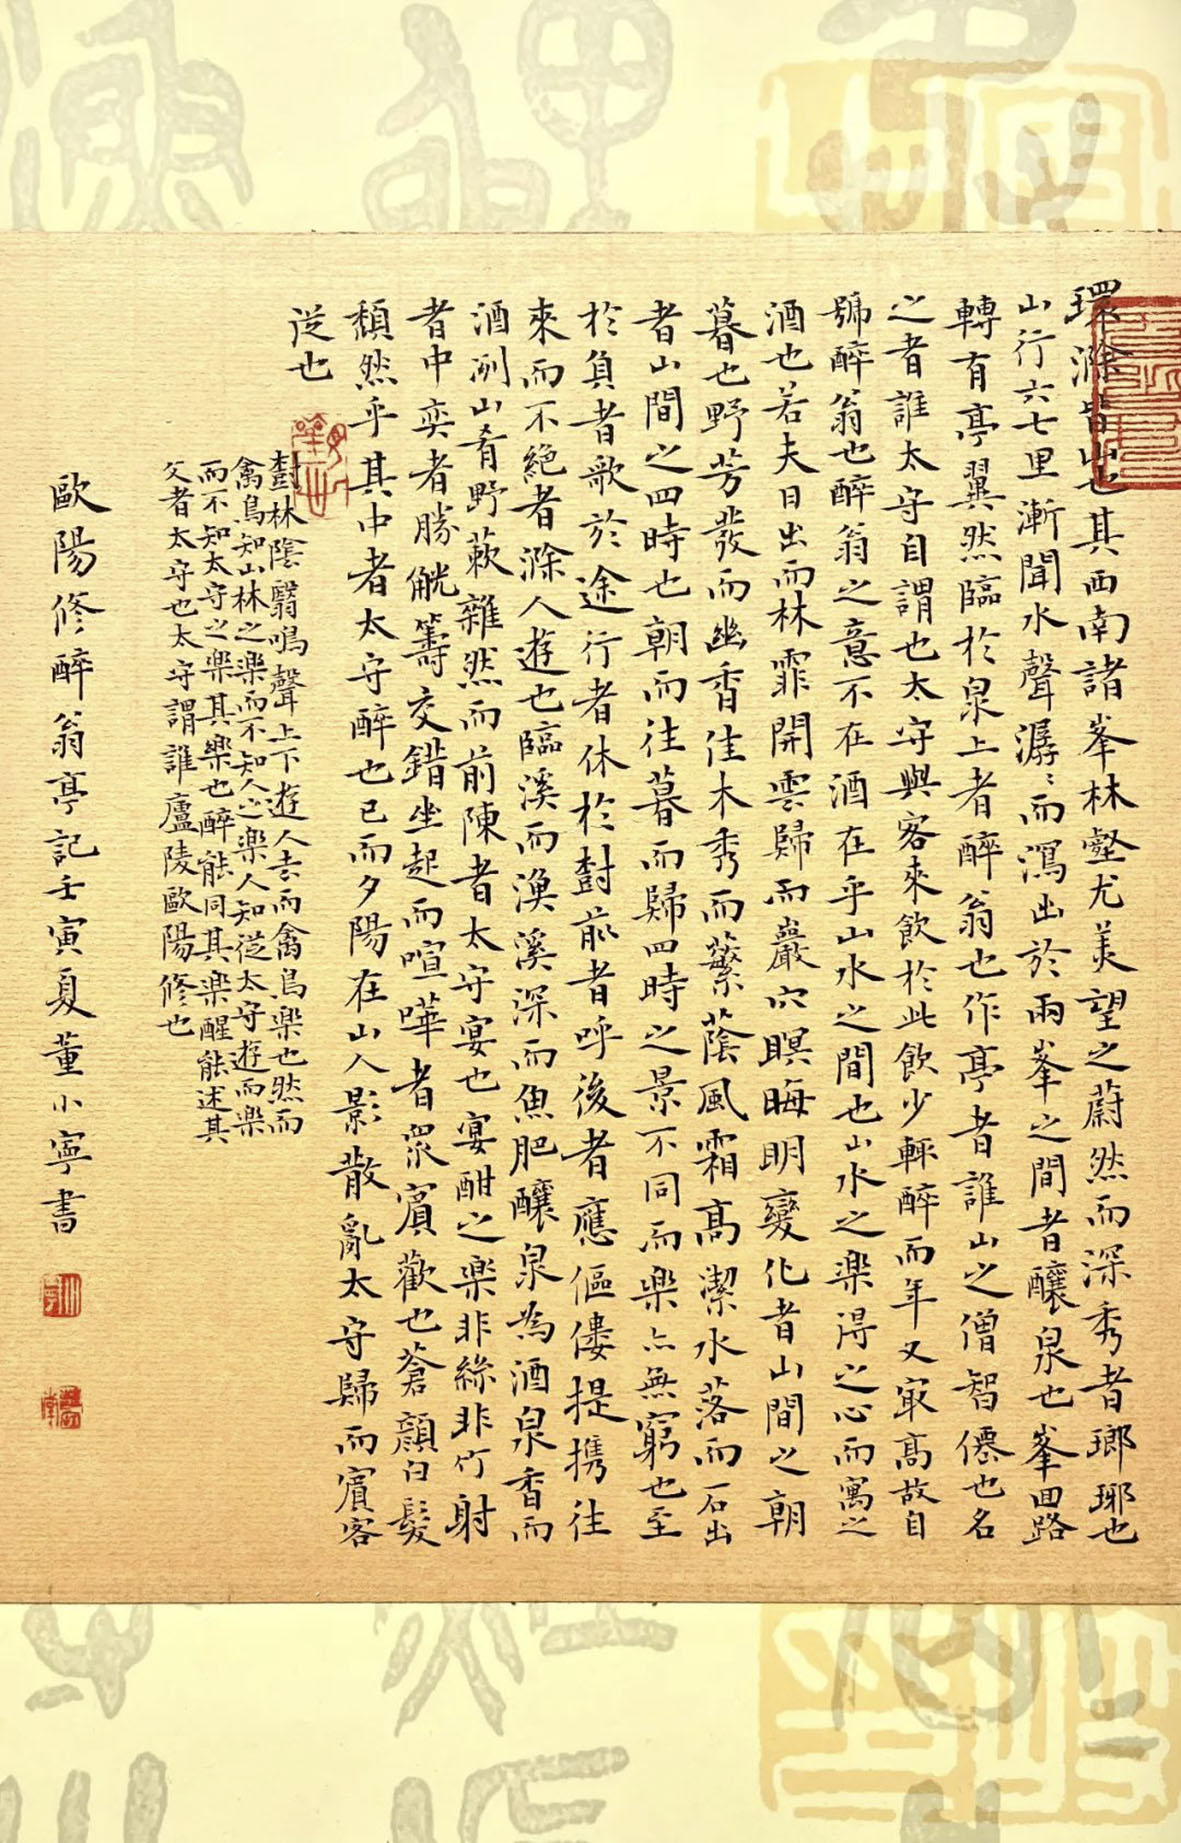 環滁皆山也其西南諸峯林壑尤美望之蔚然而深秀者瑯琊也
山行六七里漸聞水聲潺〻而瀉出於兩峯之間者釀泉也峯回路
轉有亭翼然臨於泉上者醉翁也作亭者誰山之僧智僊也名
之者誰太守自謂也太守與客來飲於此飲少輒醉而年又最高故自
號醉翁也醉翁之意不在酒在乎山水之間也山水之樂得之心而寓之
酒也若夫日出而林霏開雲歸而巖穴暝晦明變化者山間之朝
暮也野芳發而幽香佳木秀而繁蔭風霜高潔水落而石出
者山間之四時也朝而往暮而歸四時之景不同而樂亦無窮也至
於負者歌於途行者休於樹前者呼後者應傴僂提攜往
來而不絕者滁人遊也臨溪而漁溪深而魚肥釀泉為酒泉香而
酒洌山肴野蔌雜然而前陳者太守宴也宴酣之樂非絲非竹射
者中奕者勝觥籌交錯坐起而喧嘩者眾賓歡也蒼顏白髮
頹然乎其中者太守醉也已而夕陽在山人影散亂太守歸而賓客
從也
樹林陰翳鳴聲上下遊人去而禽鳥樂也然而
禽鳥知山林之樂而不知人之樂人知從太守遊而樂
而不知太守之樂其樂也醉能同其樂醒能述其
文者太守也太守謂誰廬陵歐陽修也
歐陽修醉翁亭記壬寅夏董小寧書